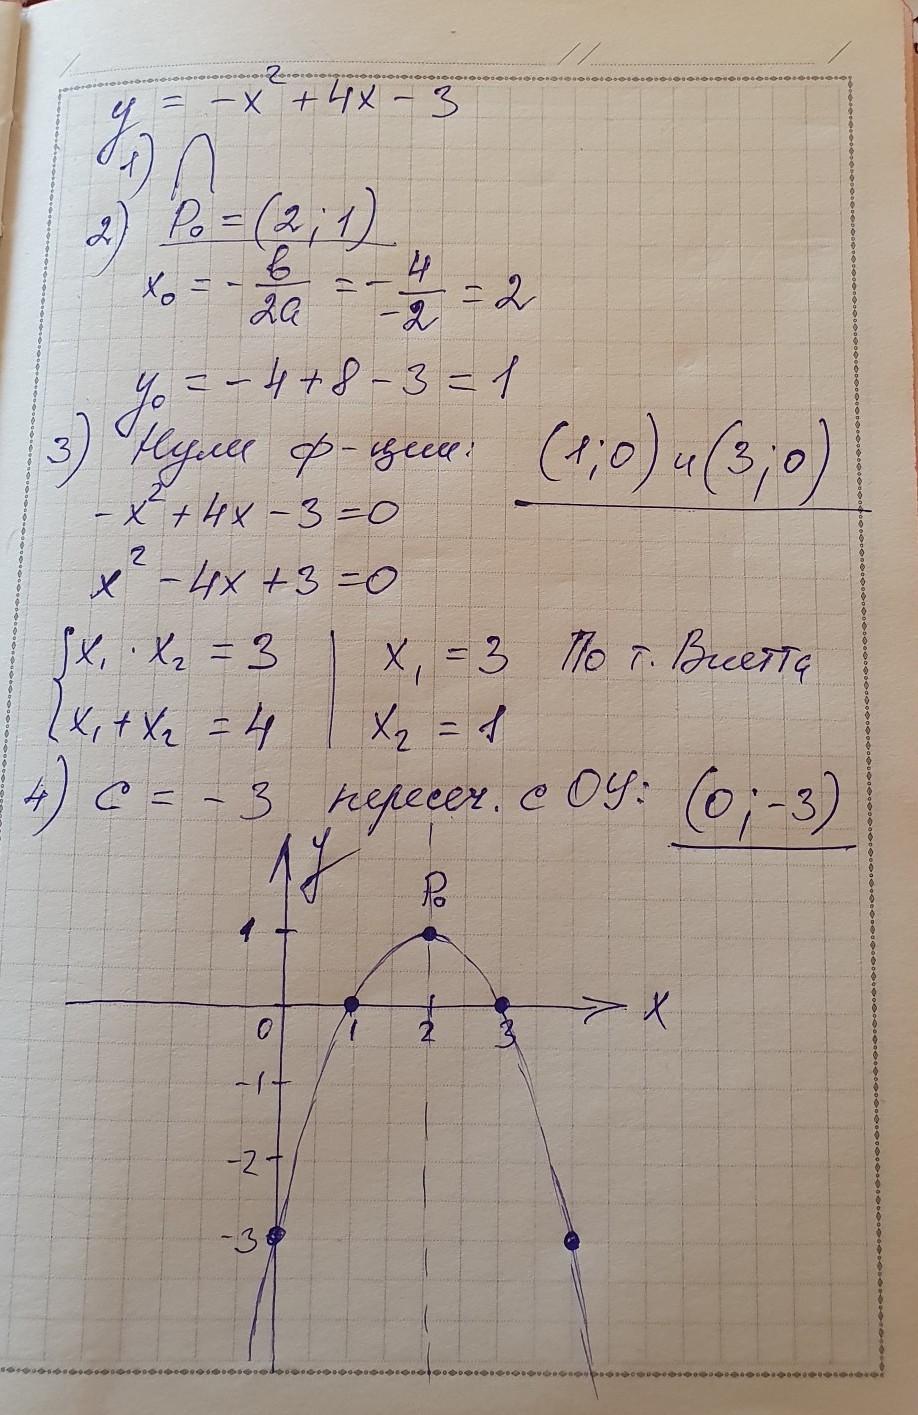 y = -x² + 4x - 3
1) ∩
2) P₀ = (2 ; 1)
x₀ = - в/2a = - 4/-2 = 2
y₀ = - 4 + 8 - 3 = 1
3) Нули ф-ции: (1;0) и (3;0)
-x² + 4x - 3 = 0
x² - 4x + 3 = 0
{ x₁ · x₂ = 3 | x₁ = 3 По т. Виетта
x₁ + x₂ = 4 | x₂ = 1
4) C = - 3 пересеч. с ОУ: (0 ; -3)
y
P₀
1
0 1 2 3 x
-1
-2
-3